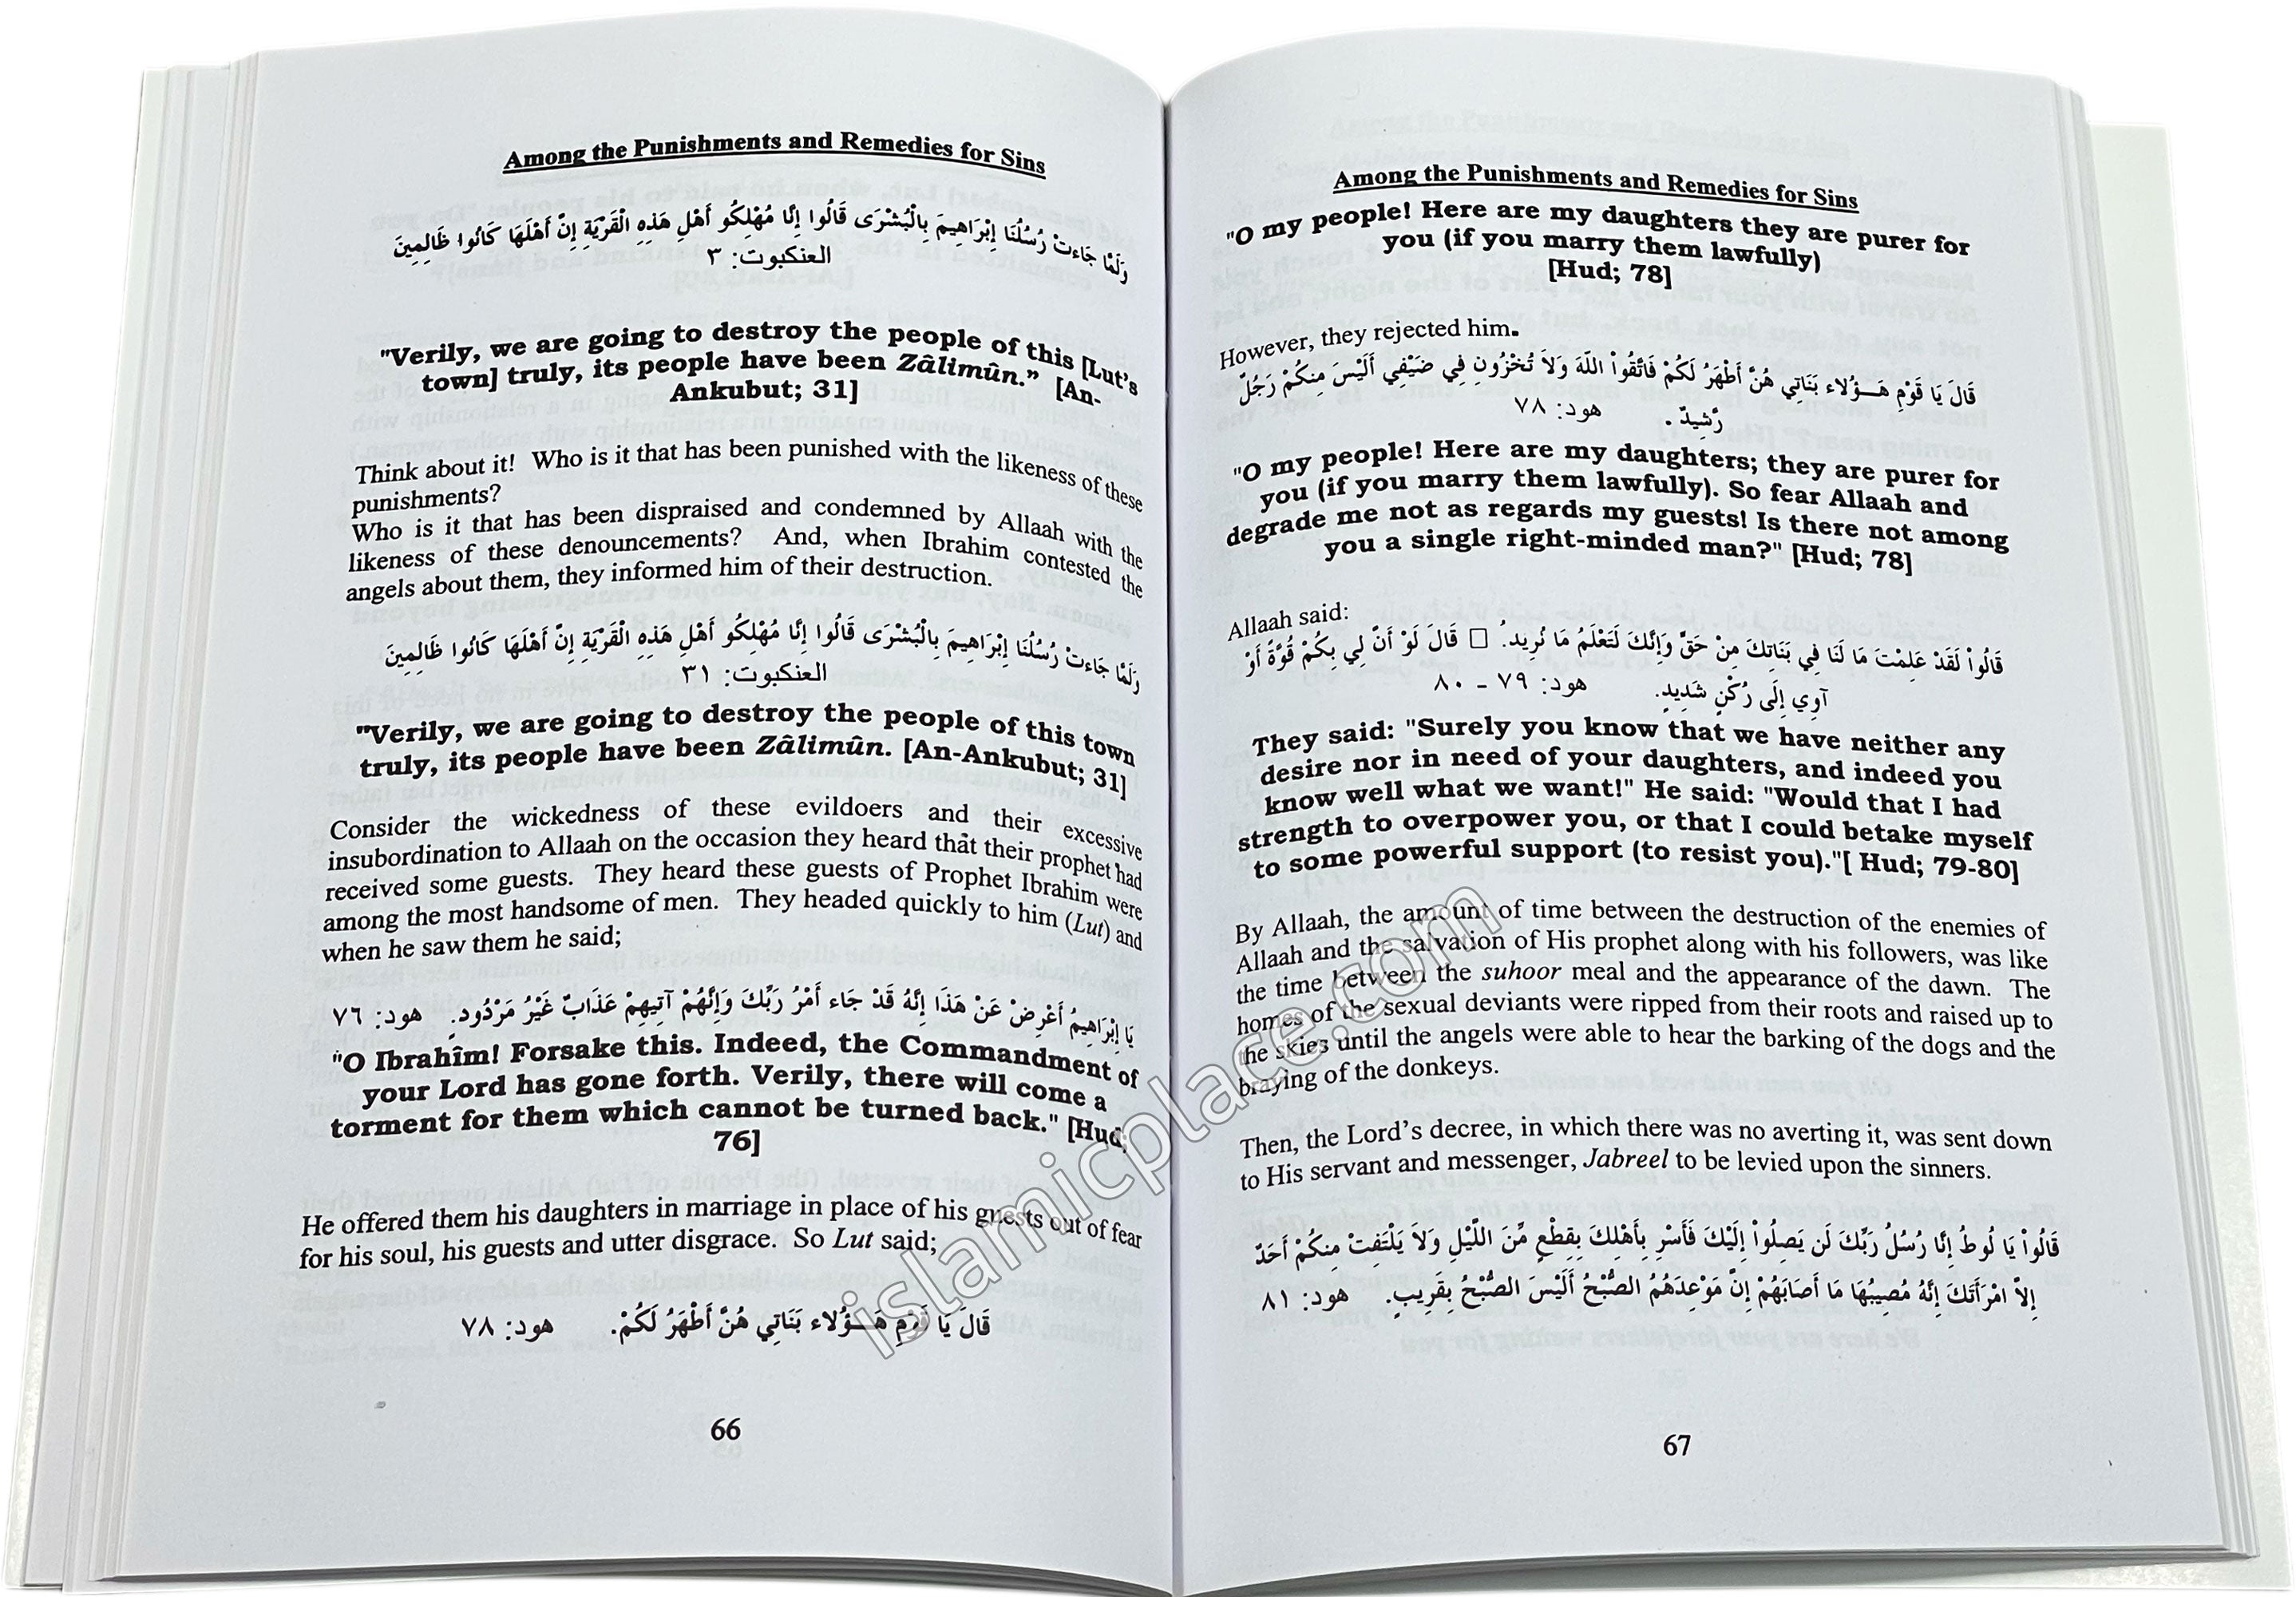 Among the Punishments and Remedies for Sins
وَلَمَّا جَاءتْ رُسُلُنَا إِبْرَاهِيمَ بِالْبُشْرَى قَالُوا إِنَّا مُهْلِكُو أَهْلِ هَذِهِ الْقَرْيَةِ إِنَّ أَهْلَهَا كَانُوا ظَالِمِينَ
العنكبوت: ٣
"Verily, we are going to destroy the people of this [Lut's
town] truly, its people have been Zâlimûn.” [An-
Ankubut; 31]
Think about it! Who is it that has been punished with the likeness of these
punishments?
Who is it that has been dispraised and condemned by Allaah with the
likeness of these denouncements? And, when Ibrahim contested the
angels about them, they informed him of their destruction.
وَلَمَّا جَاءتْ رُسُلُنَا إِبْرَاهِيمَ بِالْبُشْرَى قَالُوا إِنَّا مُهْلِكُو أَهْلِ هَذِهِ الْقَرْيَةِ إِنَّ أَهْلَهَا كَانُوا ظَالِمِينَ
العنكبوت: ٣١
"Verily, we are going to destroy the people of this town
truly, its people have been Zâlimûn. [An-Ankubut; 31]
Consider the wickedness of these evildoers and their excessive
insubordination to Allaah on the occasion they heard that their prophet had
received some guests. They heard these guests of Prophet Ibrahim were
among the most handsome of men. They headed quickly to him (Lut) and
when he saw them he said;
يَا إِبْرَاهِيمُ أَعْرِضْ عَنْ هَذَا إِنَّهُ قَدْ جَاء أَمْرُ رَبِّكَ وَإِنَّهُمْ آتِيهِمْ عَذَابٌ غَيْرُ مَرْدُودٍ. هود: ٧٦
"O Ibrahîm! Forsake this. Indeed, the Commandment of
your Lord has gone forth. Verily, there will come a
torment for them which cannot be turned back." [Hud;
76]
He offered them his daughters in marriage in place of his guests out of fear
for his soul, his guests and utter disgrace. So Lut said;
قَالَ يَا قَوْمِ هَـؤُلاء بَنَاتِي هُنَّ أَطْهَرُ لَكُمْ. هود: ٧٨
66
Among the Punishments and Remedies for Sins
"O my people! Here are my daughters they are purer for
you (if you marry them lawfully)
[Hud; 78]
However, they rejected him.
قَالَ يَا قَوْمِ هَـؤُلاء بَنَاتِي هُنَّ أَطْهَرُ لَكُمْ فَاتَّقُواْ اللّهَ وَلاَ تُخْزُونِ فِي ضَيْفِي أَلَيْسَ مِنكُمْ رَجُلٌ
رَّشِيدٌ . هود: ٧٨
"O my people! Here are my daughters; they are purer for
you (if you marry them lawfully). So fear Allaah and
degrade me not as regards my guests! Is there not among
you a single right-minded man?" [Hud; 78]
Allaah said:
قَالُواْ لَقَدْ عَلِمْتَ مَا لَنَا فِي بَنَاتِكَ مِنْ حَقٍّ وَإِنَّكَ لَتَعْلَمُ مَا نُرِيدُ. □ قَالَ لَوْ أَنَّ لِي بِكُمْ قُوَّةً أَوْ
آوِي إِلَى رُكْنٍ شَدِيدٍ. هود: ٧٩ - ٨٠
They said: "Surely you know that we have neither any
desire nor in need of your daughters, and indeed you
know well what we want!" He said: "Would that I had
strength to overpower you, or that I could betake myself
to some powerful support (to resist you)."[ Hud; 79-80]
By Allaah, the amount of time between the destruction of the enemies of
Allaah and the salvation of His prophet along with his followers, was like
the time between the suhoor meal and the appearance of the dawn. The
homes of the sexual deviants were ripped from their roots and raised up to
the skies until the angels were able to hear the barking of the dogs and the
braying of the donkeys.
Then, the Lord’s decree, in which there was no averting it, was sent down
to His servant and messenger, Jabreel to be levied upon the sinners.
قَالُواْ يَا لُوطُ إِنَّا رُسُلُ رَبِّكَ لَن يَصِلُواْ إِلَيْكَ فَأَسْرِ بِأَهْلِكَ بِقِطْعٍ مِّنَ اللَّيْلِ وَلاَ يَلْتَفِتْ مِنكُمْ أَحَدٌ
إِلاَّ امْرَأَتَكَ إِنَّهُ مُصِيبُهَا مَا أَصَابَهُمْ إِنَّ مَوْعِدَهُمُ الصُّبْحُ أَلَيْسَ الصُّبْحُ بِقَرِيبٍ. هود: ٨١
67
islamicplace.com